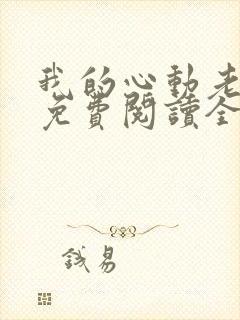 我的心動老
免費閱讀全
錢易